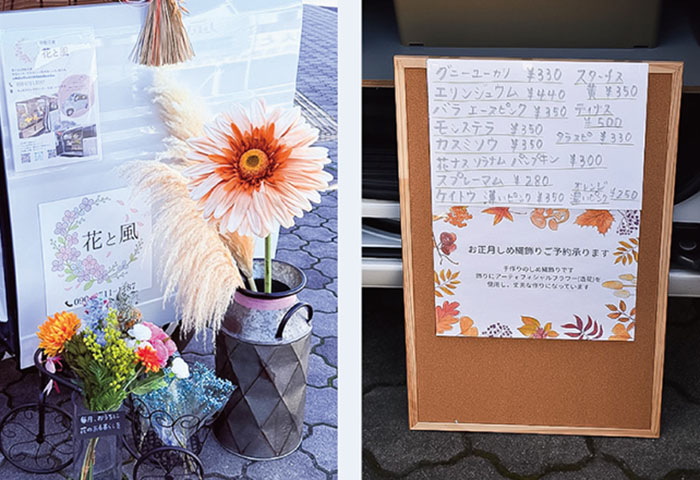 花と風
花と風
毎月、おうちに
花のある暮らしを
グニーユーカリ ¥330
エリンジュウム ¥440
バラ エースピンク ¥350
モンステラ ¥350
カスミソウ ¥350
花ナス ソラナム パンプキン ¥300
スプレーマム ¥280
ケイトウ 濃いピンク ¥350
スターチス
黄 ¥350
¥500
タラスピ ¥330
オレンジ
濃いピンク ¥250
お正月しめ縄飾りご予約承ります
手作りのしめ縄飾りです
飾りにアーティフィシャルフラワー(造花)を
使用し、丈夫な作りになっています